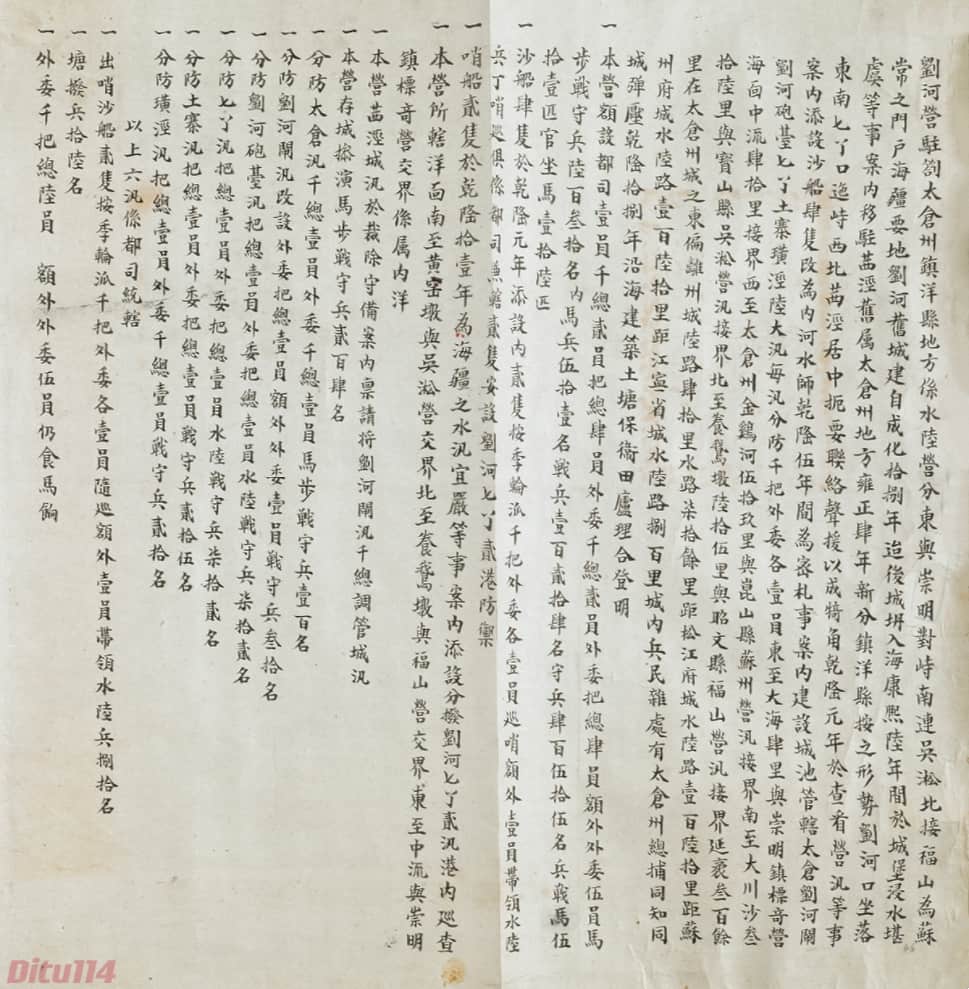 劉河營駐劄太倉州鎮洋縣地方係水陸營分東與崇明對峙南連吳淞北接福山為蘇
常之門戶海疆要地劉河舊城建自成化拾捌年迨後城坍入海康熙陸年間於城堡浸水堪
虞等事案內移駐茜涇舊属太倉州地方雍正肆年新分鎮洋縣按之形勢劉河口坐落
東南七丫口迤峙西北茜涇居中扼要聯絡聲援以成犄角乾隆元年於查看營汛等事
案內添設沙船肆隻改為內河水師乾隆伍年間為密札事案內建設城池管轄太倉劉河閘
劉河砲臺七丫土寨璜涇陸大汛每汛分防千把外委各壹員東至大海肆里與崇明鎮標奇營
海自中流肆拾里接界西至太倉州金鷄河伍拾玖里與崑山縣蘇州營汛接界南至大川沙叁
拾陸里與寶山縣吳淞營汛接界北至養鵞墩陸拾伍里與昭文縣福山營汛接界延袤叁百餘
里在太倉州城之東偏離州城陸路肆拾里水路柒拾餘里距松江府城水陸路壹百陸拾里距蘇
州府城水陸路壹百陸拾里距江寧省城水陸路捌百里城內兵民雜處有太倉州總捕同知同
城彈壓乾隆拾捌年沿海建築土塘保衞田廬理合登明
一本營額設都司壹員千總貳員把總肆員外委千總貳員外委把總肆員額外外委伍員馬
步戰守兵陸百叁拾名內馬兵伍拾壹名戰兵壹百貳拾肆名守兵肆百伍拾伍名兵戰馬伍
拾壹匹官坐馬壹拾陸匹
一沙船肆隻於乾隆元年添設內貳隻按季輪派千把外委各壹員巡哨額外壹員帶領水陸
兵丁哨巡俱係都司兼轄貳隻安設劉河七丫貳港防禦
一哨船貳隻於乾隆拾壹年為海疆之水汛宜嚴等事案內添設分撥劉河七丫貳汛港內巡查
一本營所轄洋面南至黃窑墩與吳淞營交界北至養鵞墩與福山營交界東至中流與崇明
鎮標奇營交界係属內洋
一本營茜涇城汛於裁除守備案內禀請將劉河閘汛千總調管城汛
一本營存城操演馬步戰守兵貳百肆名
一分防太倉汛千總壹員外委千總壹員馬步戰守兵壹百名
一分防劉河閘汛改設外委把總壹員額外外委壹員戰守兵叁拾名
一分防劉河砲臺汛把總壹員外委把總壹員水陸戰守兵柒拾貳名
一分防七丫汛把總壹員外委把總壹員水陸戰守兵柒拾貳名
一分防土寨汛把總壹員外委把總壹員戰守兵貳拾伍名
一分防璜涇汛把總壹員外委千總壹員戰守兵貳拾名
以上六汛係都司統轄
一出哨沙船貳隻按季輪派千把外委各壹員隨巡額外壹員帶領水陸兵捌拾名
一塘撥兵拾陸名
一外委千把總陸員 額外外委伍員仍食馬餉
Ditu114